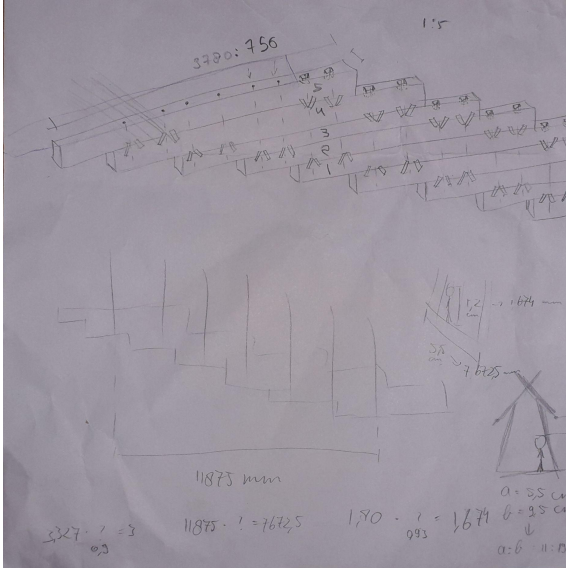 1:5
3780:756
5
4
3
2
1
1,2
cm
1674 mm
5,5
cm
7672,5 mm
11875 mm
a = 5,5 cm
b = 9,5 cm
a:b
3,327 · ? = 3
0,9
11875 · ? = 7672,5
1,80 · ? = 1,674
0,93